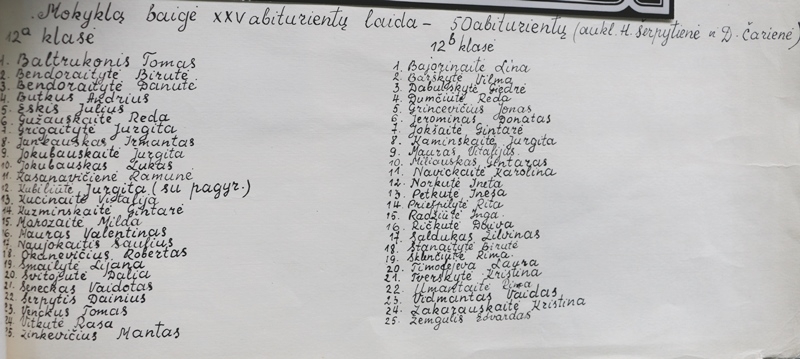 Mokyklą baigė XXV abiturientų laida - 50 abiturientų (aukl. H. Šerpytienė ir D. Čarienė)
12ᵃ klasė
1. Baltrukonis Tomas
2. Bendoraitytė Birutė
3. Bendoraitytė Danutė
4. Butkus Andrius
5. Eskis Julius
6. Gužauskaitė Reda
7. Grigaitytė Jurgita
8. Jankauskas Irmantas
9. Jokubauskaitė Jurgita
10. Jokubauskas Lukas
11. Kasanavičienė Ramunė
12. Kubiliūtė Jurgita (su pagyr.)
13. Kučinaitė Vistalija
14. Kuzminskaitė Gintarė
15. Marozaitė Milda
16. Mauras Valentinas
17. Naujokaitis Saulius
18. Oknevičius Robertas
19. Smailytė Lijana
20. Svitopūtė Dalia
21. Seneckas Vaidotas
22. Šerpytis Dainius
23. Venckus Tomas
24. Vitkutė Rasa
25. Zinkevičius Mantas
12ᵇ klasė
1. Bajorinaitė Lina
2. Barskytė Vilma
3. Dabulskytė Giedrė
4. Dumčiutė Reda
5. Grincevičius Jonas
6. Jerominas Donatas
7. Jokšaitė Gintarė
8. Kaminskaitė Jurgita
9. Mauras Vitalijus
10. Miliauskas Gintaras
11. Navickaitė Karolina
12. Norkutė Ineta
13. Petkutė Inesa
14. Priešpilytė Rita
15. Radžiūtė Inga
16. Ričkutė Daiva
17. Saldukas Žilvinas
18. Stanaitytė Birutė
19. Sklenčiutė Rima
20. Timofejeva Laura
21. Tverskytė Kristina
22. Umantaitė Rima
23. Vidmantas Vaidas
24. Zakarauskaitė Kristina
25. Žemgulis Edvardas